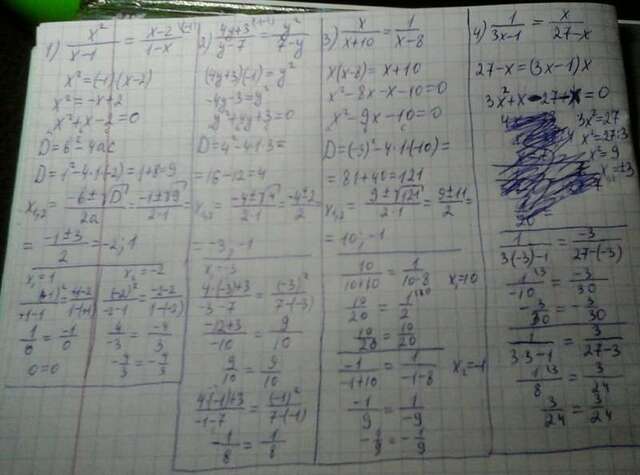 1) x²/(x-1) = (x-2)/(1-x) (-1)
x² = (-1)(x-2)
x² = -x+2
x²+x-2=0
D=b²-4ac
D=1²-4·1·(-2)=1+8=9
x₁,₂ = (-b±√D)/2a = (-1±√9)/(2·1) =
= (-1±3)/2 = -2; 1
x₁=1 x₂=-2
1/0 = -1/0
0=0
(-2)²/(-2-1) = (-2-2)/(1-(-2))
4/-3 = -4/3
-4/3 = -4/3
2) (4y+3)/(y-7) (-1) = y²/(7-y)
(4y+3)(-1)=y²
-4y-3=y²
y²+4y+3=0
D=4²-4·1·3=
=16-12=4
x₁,₂ = (-4±√4)/(2·1) = (-4±2)/2
= -3; -1
x₁=-3
(4·(-3)+3)/(-3-7) = (-3)²/(7-(-3))
(-12+3)/-10 = 9/10
9/10 = 9/10
(4·(-1)+3)/(-1-7) = (-1)²/(7-(-1))
-1/8 = 1/8
3) x/(x+10) = 1/(x-8)
x(x-8) = x+10
x²-8x-x-10=0
x²-9x-10=0
D=(-9)²-4·1·(-10)=
=81+40=121
x₁,₂ = (9±√121)/(2·1) = (9±11)/2 =
=10; -1
10/(10+10) = 1/(10-8) x₁=10
10/20 = 1/2 (10
10/20 = 10/20
-1/(-1+10) = 1/(-1-8) x₂=-1
-1/9 = 1/-9
-1/9 = -1/9
4) 1/(3x-1) = x/(27-x)
27-x=(3x-1)x
3x²+x-27-x=0
3x²=27
x²=27:3
x²=9
x₁,₂=±3
1/(3(-3)-1) = -3/(27-(-3))
1/-10 (3 = -3/30
-3/30 = 3/30
1/(3·3-1) = 3/(27-3)
1/8 (3 = 3/24
3/24 = 3/24